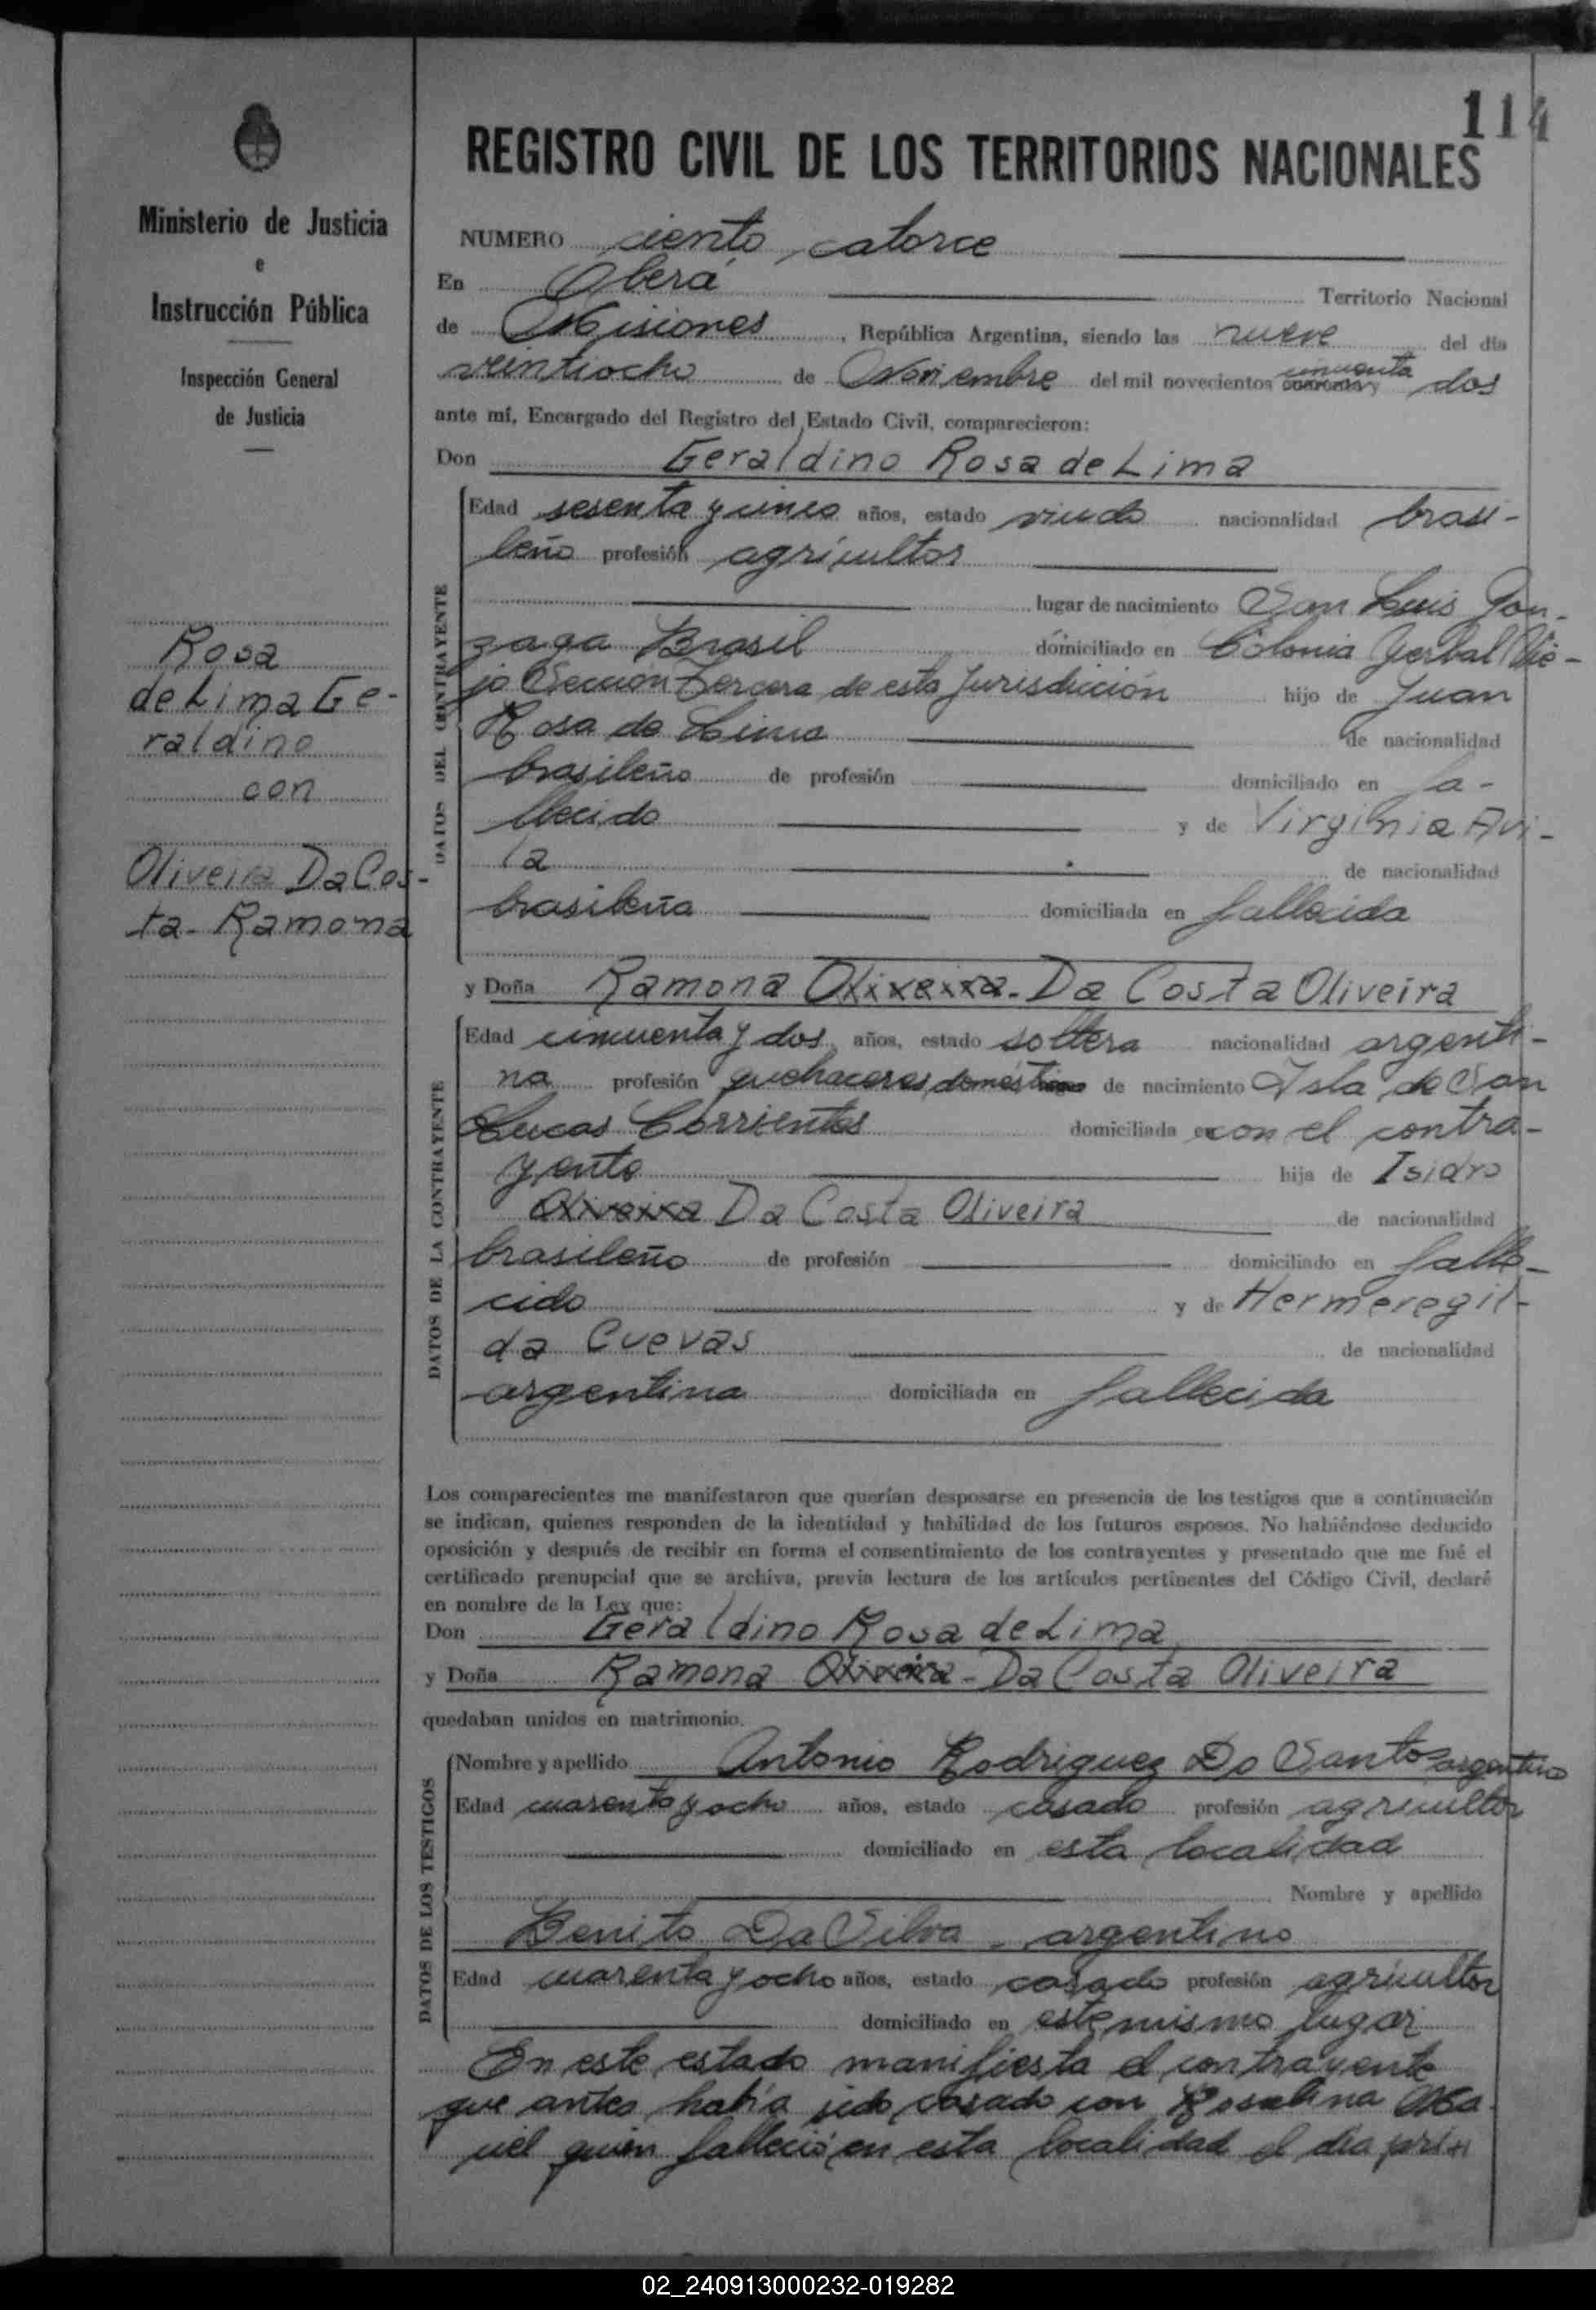 114
REGISTRO CIVIL DE LOS TERRITORIOS NACIONALES
Ministerio de Justicia
e
Instrucción Pública
Inspección General
de Justicia
Rosa
de Lima Ge-
raldino
con
Oliveira Da Cos-
ta - Ramona
NUMERO ciento catorce
En Oberá Territorio Nacional
de Misiones, República Argentina, siendo las nueve del día
veintiocho de Noviembre del mil novecientos cuarenta y cincuenta dos
ante mí, Encargado del Registro del Estado Civil, comparecieron:
Don Geraldino Rosa de Lima
DATOS DEL CONTRAYENTE
Edad sesenta y cinco años, estado viudo nacionalidad brasi-
leño profesión agricultor
lugar de nacimiento San Luis Gon-
zaga Brasil domiciliado en Colonia Yerbal Vie-
jo Sección Tercera de esta Jurisdicción hijo de Juan
Rosa de Lima de nacionalidad
brasileño de profesión domiciliado en fa-
llecido y de Virginia Avi-
la de nacionalidad
brasileña domiciliada en fallecida
y Doña Ramona Oliveira - Da Costa Oliveira
DATOS DE LA CONTRAYENTE
Edad cincuenta y dos años, estado soltera nacionalidad argenti-
na profesión quehaceres domésticos de nacimiento Isla de San
Lucas Corrientes domiciliada en con el contra-
yente hija de Isidro
Oliveira Da Costa Oliveira de nacionalidad
brasileño de profesión domiciliado en falle-
cido y de Hermeregil-
da Cuevas de nacionalidad
argentina domiciliada en fallecida
Los comparecientes me manifestaron que querían desposarse en presencia de los testigos que a continuación
se indican, quienes responden de la identidad y habilidad de los futuros esposos. No habiéndose deducido
oposición y después de recibir en forma el consentimiento de los contrayentes y presentado que me fué el
certificado prenupcial que se archiva, previa lectura de los artículos pertinentes del Código Civil, declaré
en nombre de la Ley que:
Don Geraldino Rosa de Lima
y Doña Ramona Oliveira - Da Costa Oliveira
quedaban unidos en matrimonio.
DATOS DE LOS TESTIGOS
Nombre y apellido Antonio Rodriguez Do Santos argentino
Edad cuarenta y ocho años, estado casado profesión agricultor
domiciliado en esta localidad
Nombre y apellido
Benito Da Silva - argentino
Edad cuarenta y ocho años, estado casado profesión agricultor
domiciliado en este mismo lugar
En este estado manifiesta el contrayente
que antes había sido casado con Rosalina
quien falleció en esta localidad el día
02_240913000232-019282